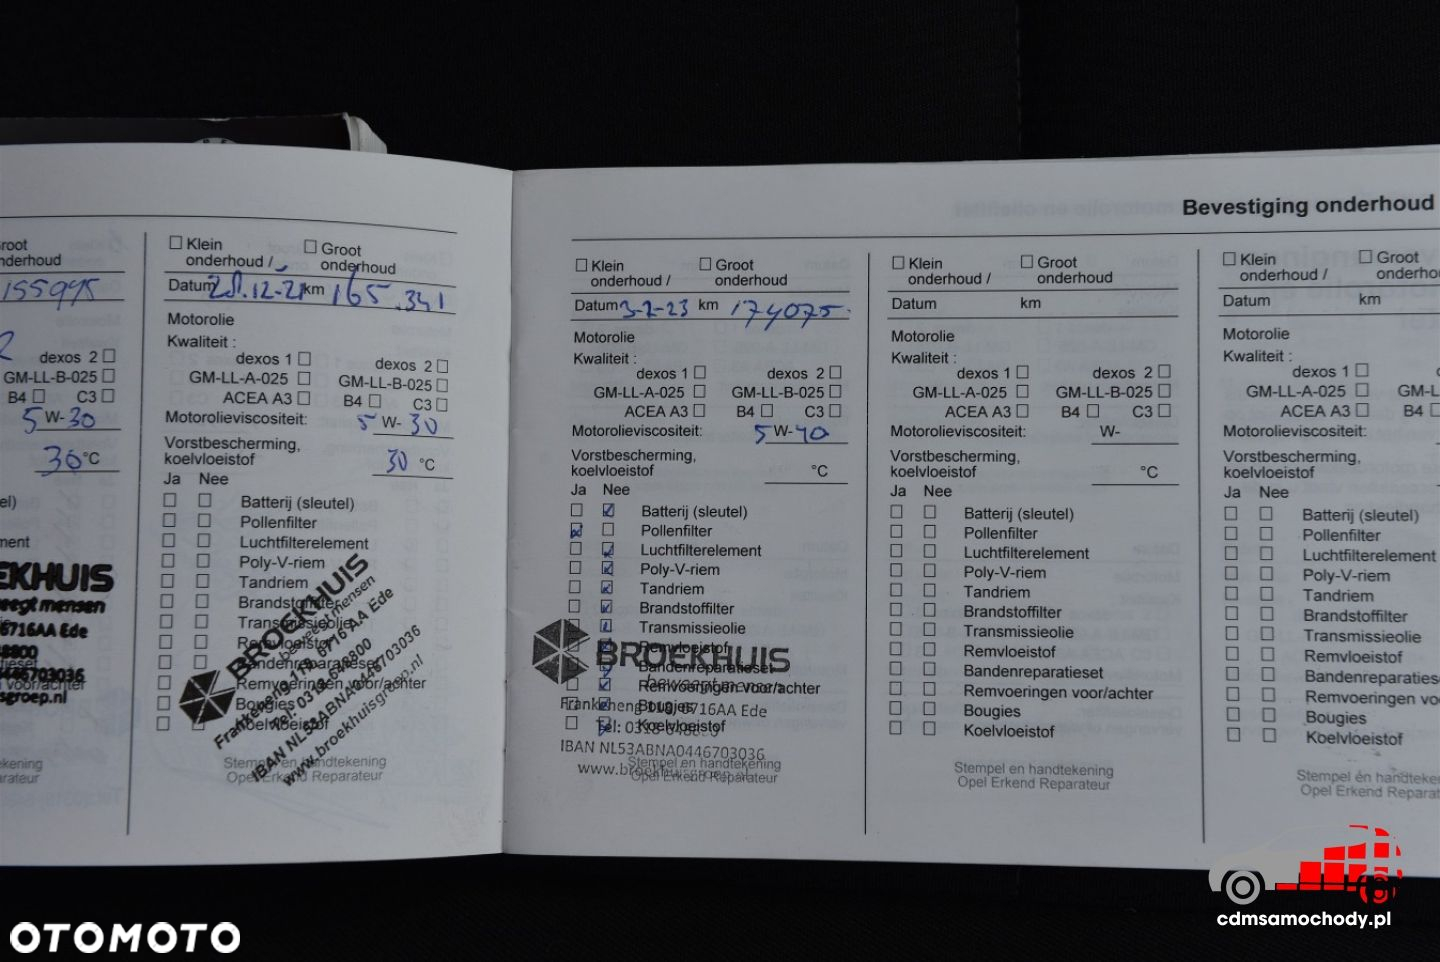 Bevestiging onderhoud
Groot
onderhoud
155995
dexos 2
GM-LL-B-025
B4 C3
5 W-30
30 °C
BROEKHUIS
beweegt mensen
6716AA Ede
Klein
onderhoud /
Groot
onderhoud
Datum 28.12-21 km 165.341
Motorolie
Kwaliteit :
dexos 1 dexos 2
GM-LL-A-025 GM-LL-B-025
ACEA A3 B4 C3
Motorolieviscositeit: 5 W- 30
Vorstbescherming,
koelvloeistof 30 °C
Ja Nee
Batterij (sleutel)
Pollenfilter
Luchtfilterelement
Poly-V-riem
Tandriem
Brandstoffilter
Transmissieolie
Remvloeistof
Bandenreparatieset
Remvoeringen voor/achter
Bougies
Koelvloeistof
BROEKHUIS
beweegt mensen
Frankeneng 118, 6716 AA Ede
Tel: 0318-648800
IBAN NL53ABNA0446703036
www.broekhuisgroep.nl
Stempel en handtekening
Opel Erkend Reparateur
Klein
onderhoud /
Groot
onderhoud
Datum 3-2-23 km 174075.
Motorolie
Kwaliteit :
dexos 1 dexos 2
GM-LL-A-025 GM-LL-B-025
ACEA A3 B4 C3
Motorolieviscositeit: 5 W- 40
Vorstbescherming,
koelvloeistof °C
Ja Nee
Batterij (sleutel)
Pollenfilter
Luchtfilterelement
Poly-V-riem
Tandriem
Brandstoffilter
Transmissieolie
Remvloeistof
Bandenreparatieset
Remvoeringen voor/achter
Bougies
Koelvloeistof
BROEKHUIS
beweegt mensen
Frankeneng 118, 6716AA Ede
Tel: 0318-648800
IBAN NL53ABNA0446703036
www.broekhuisgroep.nl
Stempel en handtekening
Opel Erkend Reparateur
Klein
onderhoud /
Groot
onderhoud
Datum km
Motorolie
Kwaliteit :
dexos 1 dexos 2
GM-LL-A-025 GM-LL-B-025
ACEA A3 B4 C3
Motorolieviscositeit: W-
Vorstbescherming,
koelvloeistof °C
Ja Nee
Batterij (sleutel)
Pollenfilter
Luchtfilterelement
Poly-V-riem
Tandriem
Brandstoffilter
Transmissieolie
Remvloeistof
Bandenreparatieset
Remvoeringen voor/achter
Bougies
Koelvloeistof
Stempel en handtekening
Opel Erkend Reparateur
Klein
onderhoud /
Groot
onderho
Datum km
Motorolie
Kwaliteit :
dexos 1
GM-LL-A-025 GM-L
ACEA A3 B4
Motorolieviscositeit:
Vorstbescherming,
koelvloeistof
Ja Nee
Batterij (sleutel)
Pollenfilter
Luchtfilterelement
Poly-V-riem
Tandriem
Brandstoffilter
Transmissieolie
Remvloeistof
Bandenreparatiese
Remvoeringen vo
Bougies
Koelvloeistof
Stempel en handteken
Opel Erkend Reparat
cdmsamochody.pl
OTOMOTO